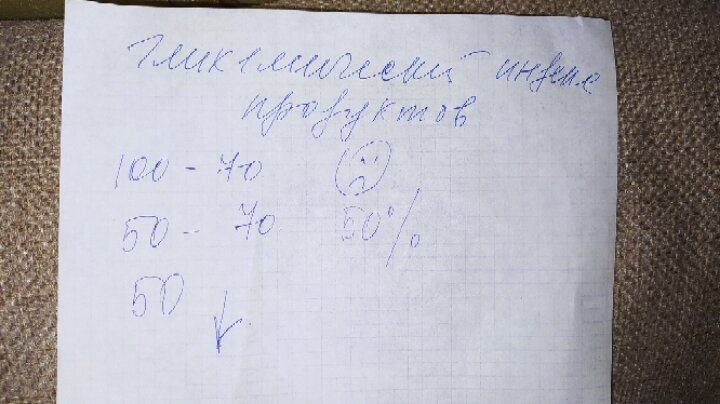 Гликемический индекс
продуктов
100 - 70
50 - 70 50%
50